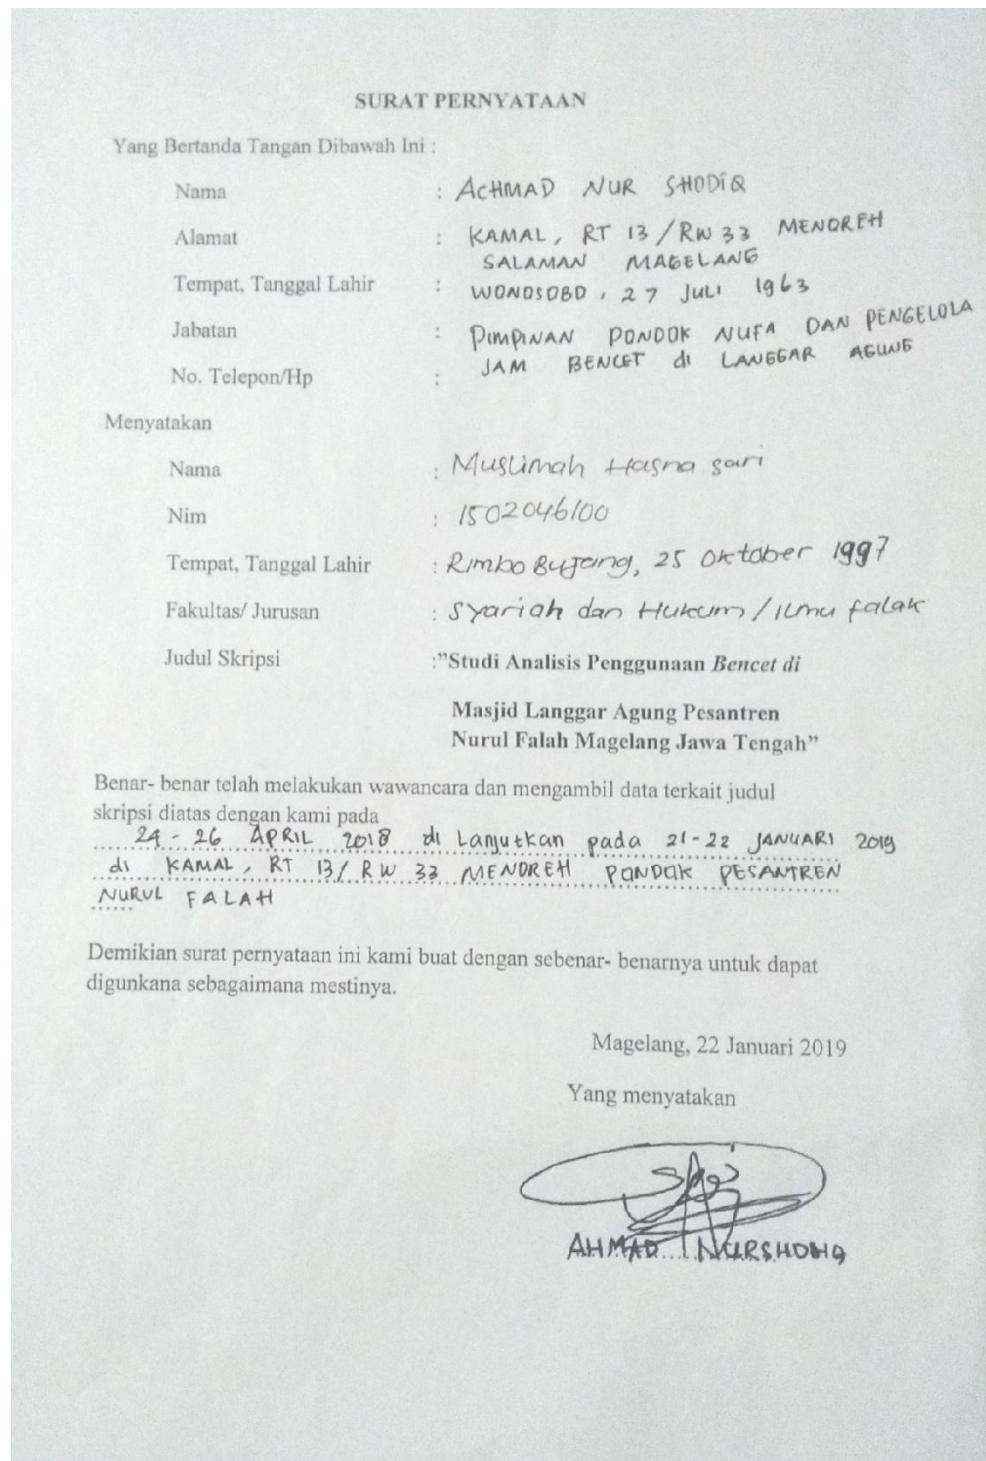 SURAT PERNYATAAN
Yang Bertanda Tangan Dibawah Ini :
Nama : ACHMAD NUR SHODIQ
Alamat : KAMAL, RT 13/RW 33 MENOREH
SALAMAN MAGELANG
Tempat, Tanggal Lahir : WONOSOBO, 27 JULI 1963
Jabatan : PIMPINAN PONDOK NUFA DAN PENGELOLA
JAM BENCET di LANGGAR AGUNG
No. Telepon/Hp :
Menyatakan
Nama : Muslimah Hasna sari
Nim : 1502046100
Tempat, Tanggal Lahir : Rimbo Bujang, 25 Oktober 1997
Fakultas/ Jurusan : Syariah dan Hukum / Ilmu falak
Judul Skripsi :"Studi Analisis Penggunaan Bencet di
Masjid Langgar Agung Pesantren
Nurul Falah Magelang Jawa Tengah"
Benar- benar telah melakukan wawancara dan mengambil data terkait judul
skripsi diatas dengan kami pada
24 - 26 APRIL 2018 di Lanjutkan pada 21-22 JANUARI 2019
di KAMAL, RT 13/RW 33 MENOREH PONDOK PESANTREN
NURUL FALAH
Demikian surat pernyataan ini kami buat dengan sebenar- benarnya untuk dapat
digunkana sebagaimana mestinya.
Magelang, 22 Januari 2019
Yang menyatakan
AHMAD NURSHODIQ